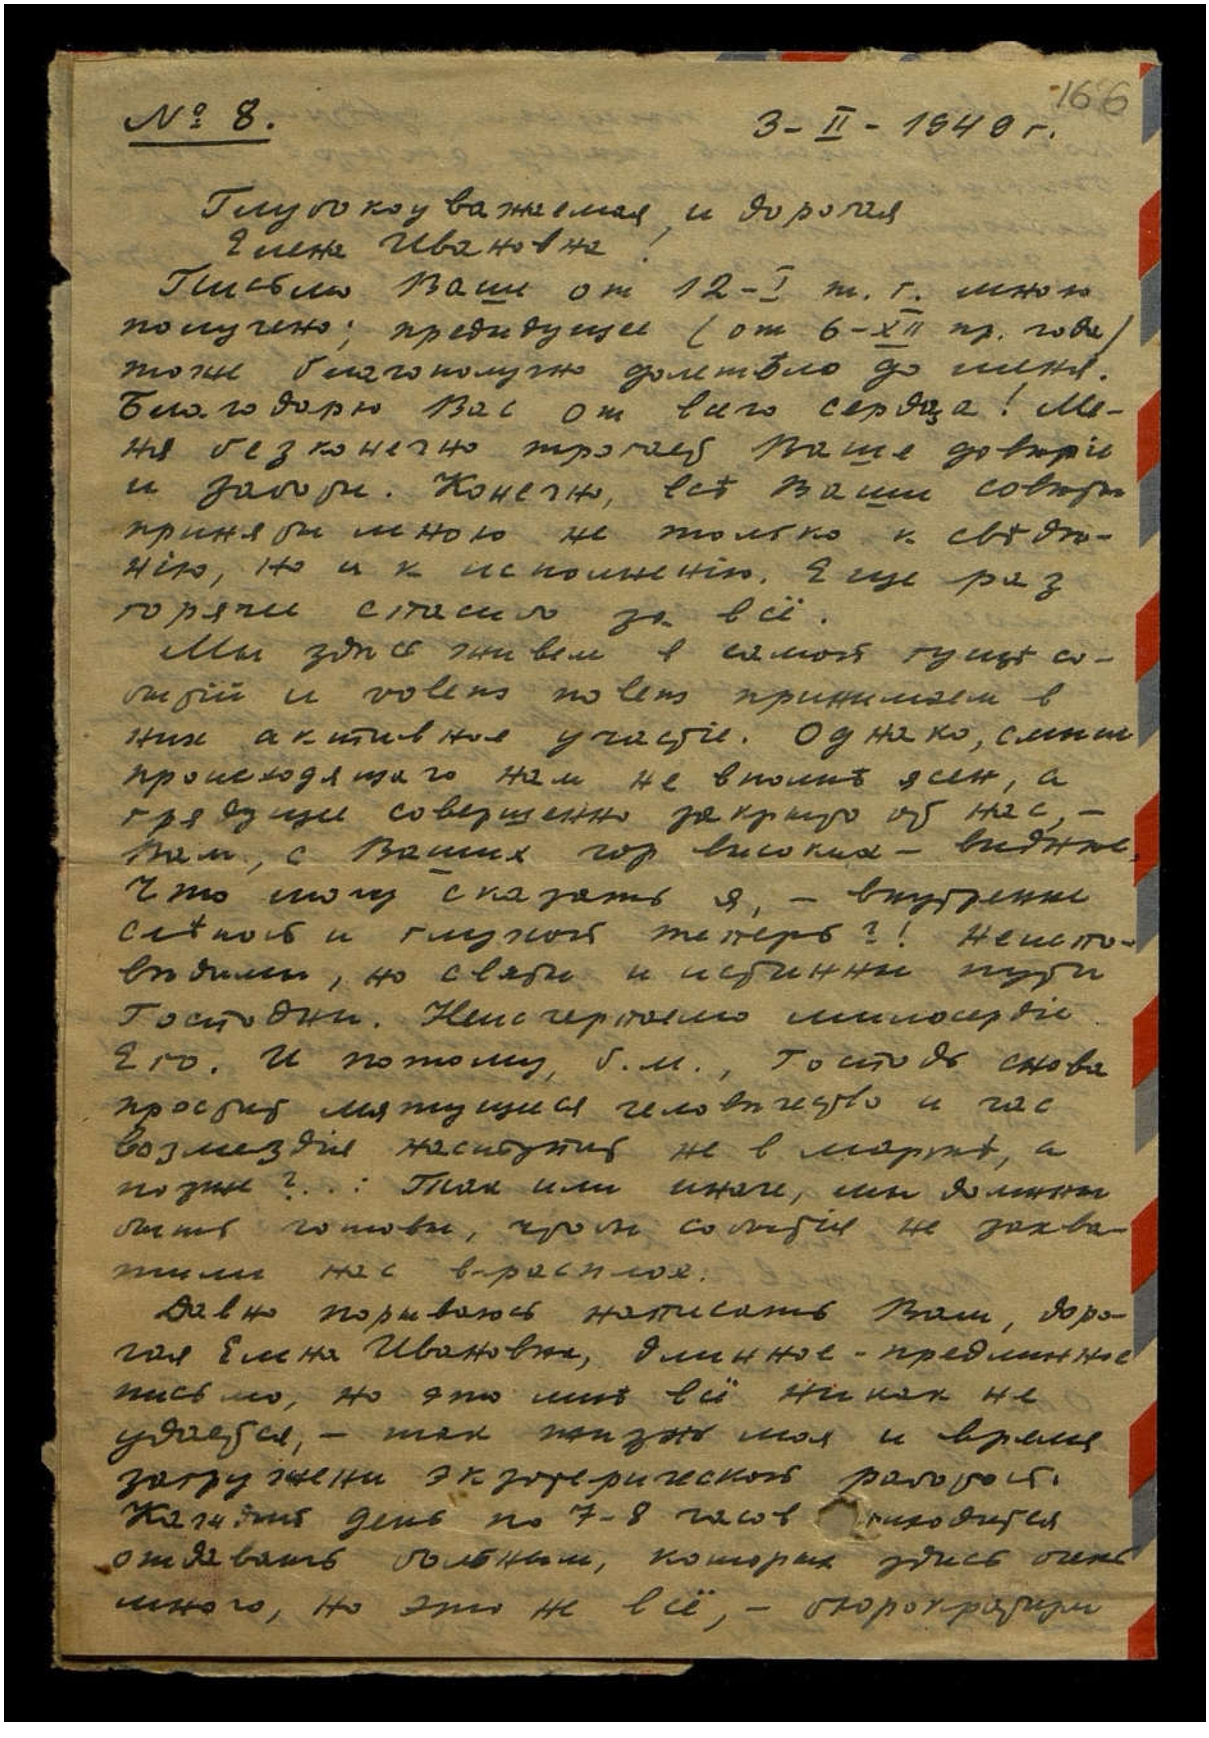 166
№ 8.
3-II-1949 г.
Глубокоуважаемая и дорогая
Елена Ивановна!
Письмо Ваше от 12-I т. г. мною
получено; предидущее (от 6-XII пр. года)
тоже благополучно долетѣло до меня.
Благодарю Вас от всего сердца! Ме-
ня безконечно трогает Ваше довѣріе
и заботы. Конечно, всѣ Ваши совѣты
приняты мною не только к свѣдѣ-
нію, но и к исполненію. Еще раз
горячее спасибо за всё.
Мы здѣсь живем в самой гущѣ со-
бытій и volens nolens принимаем в
них активное участіе. Однако, смысл
происходящаго нам не вполнѣ ясен, а
грядущее совершенно закрыто от нас, —
Вам, с Ваших гор высоких — виднѣе.
Что могу сказать я, — внутренне
слѣпой и глухой теперь?! Неиспо-
вѣдимы, но святы и истинны пути
Господни. Неисчерпаемо милосердіе
Его. И потому, б.м., Господь снова
простит мятущееся человѣчество и час
возмездія наступит не в мартѣ, а
позже?..: Так или иначе, мы должны
быть готовы, чтобы событія не захва-
тили нас врасплох.
Давно порываюсь написать Вам, доро-
гая Елена Ивановна, длинное-предлинное
письмо, но это мнѣ всё никак не
удается, — так жизнь моя и время
загружены экзотерической работой.
Каждый день по 7-8 часов приходится
отдавать больным, которых здѣсь очень
много, но это не всё, — бюрократизм